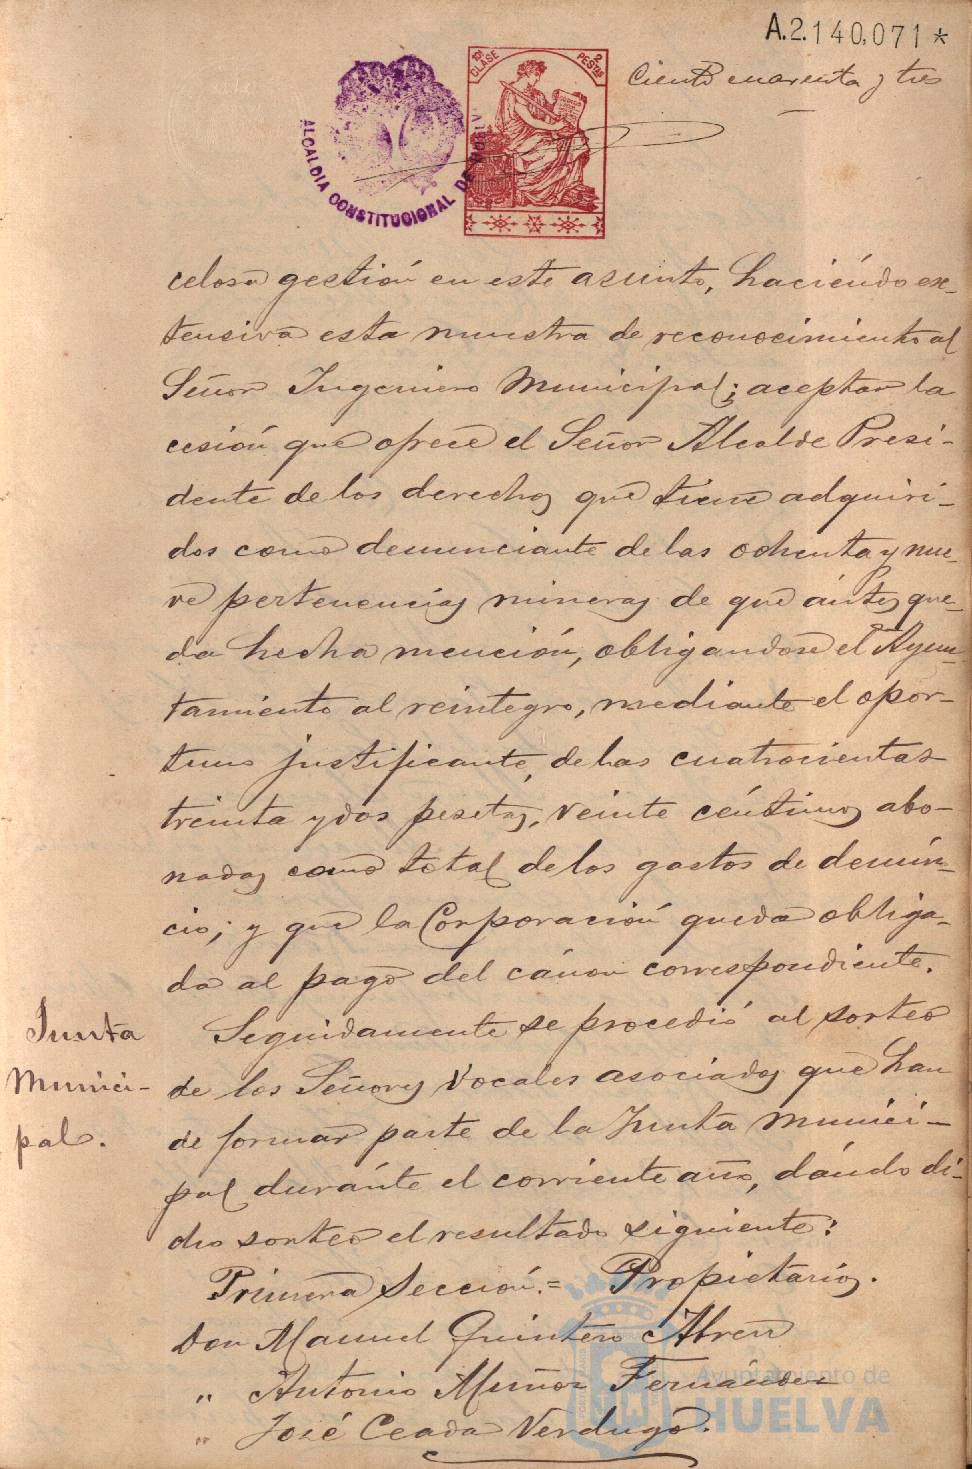 A.2.140,071*
Ciento cuarenta y tres
10ª CLASE
2 PESTAS
ALCALDIA CONSTITUCIONAL DE HUELVA
celosa gestión en este asunto, haciéndo ex-
tensiva esta muestra de reconocimiento al
Señor Ingeniero Municipal; aceptar la
cesión que ofrece el Señor Alcalde Presi-
dente de los derechos que tiene adquiri-
dos como denunciante de las ochenta y nue-
ve pertenencias mineras de que ántes que-
da hecha mención, obligandose el Ayun-
tamiento al reintegro, mediante el opor-
tuno justificante, de las cuatrocientas
treinta y dos pesetas, veinte céntimos abo-
nadas como total de los gastos de denún-
cio; y que la Corporación queda obliga-
da al pago del cánon correspondiente.
Junta
Munici-
pal.
Seguidamente se procedió al sorteo
de los Señores Vocales asociados que han
de formar parte de la Junta Munici-
pal duránte el corriente año, dándo di-
cho sorteo el resultado siguiente:
Primera Sección.= Propietarios.
Don Manuel Quintero Abreu
" Antonio Muñoz Fernández
" José Ceada Verdugo.
Ayuntamiento de
HUELVA